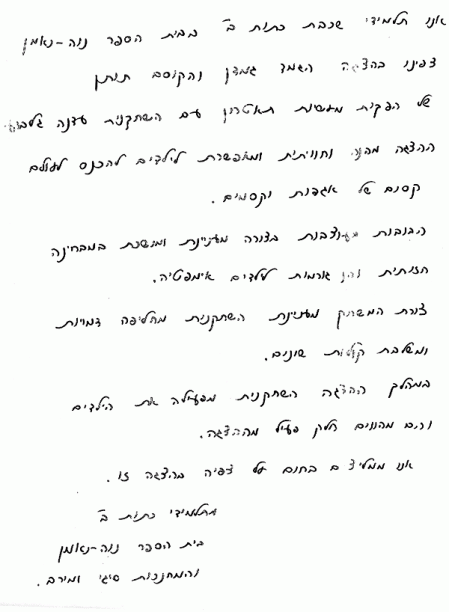 אנו תלמידי שכבת כתות ב' מבית הספר נוה-נאמן
צפינו בהצגה הגמד גמדן והקוסם תותן
של הפקות מעשיות תאטרון עם השחקנית עדנה
ההצגה מהנה וחוויתית ומאפשרת לילדים להכנס לעולם
קסום של אגדות וקסמים.
הבובות מעוצבות בצורה מעניינת ומושכת מבחינה
חזותית והן גורמות לילדים אימפטיה.
צורת המשחק מעניינת השחקנית מחליפה דמויות
ומשלבת קולות שונים.
במהלך ההצגה השחקנית מפעילה את הילדים
והם מהווים חלק פעיל מההצגה.
אנו ממליצים בחום על צפיה בהצגה זו.
מתלמידי כתות ב'
בית הספר נוה-נאמן
והמחנכות סיגי ומירב.